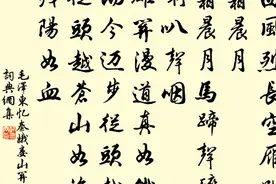 風烈長空雁
霜晨月
霜晨月馬蹄聲碎
喇叭聲咽
關漫道真如鐵
而今迈步從頭越
從頭越蒼山如海
殘陽如血
毛澤東忆秦娥娄山關
詞典網集